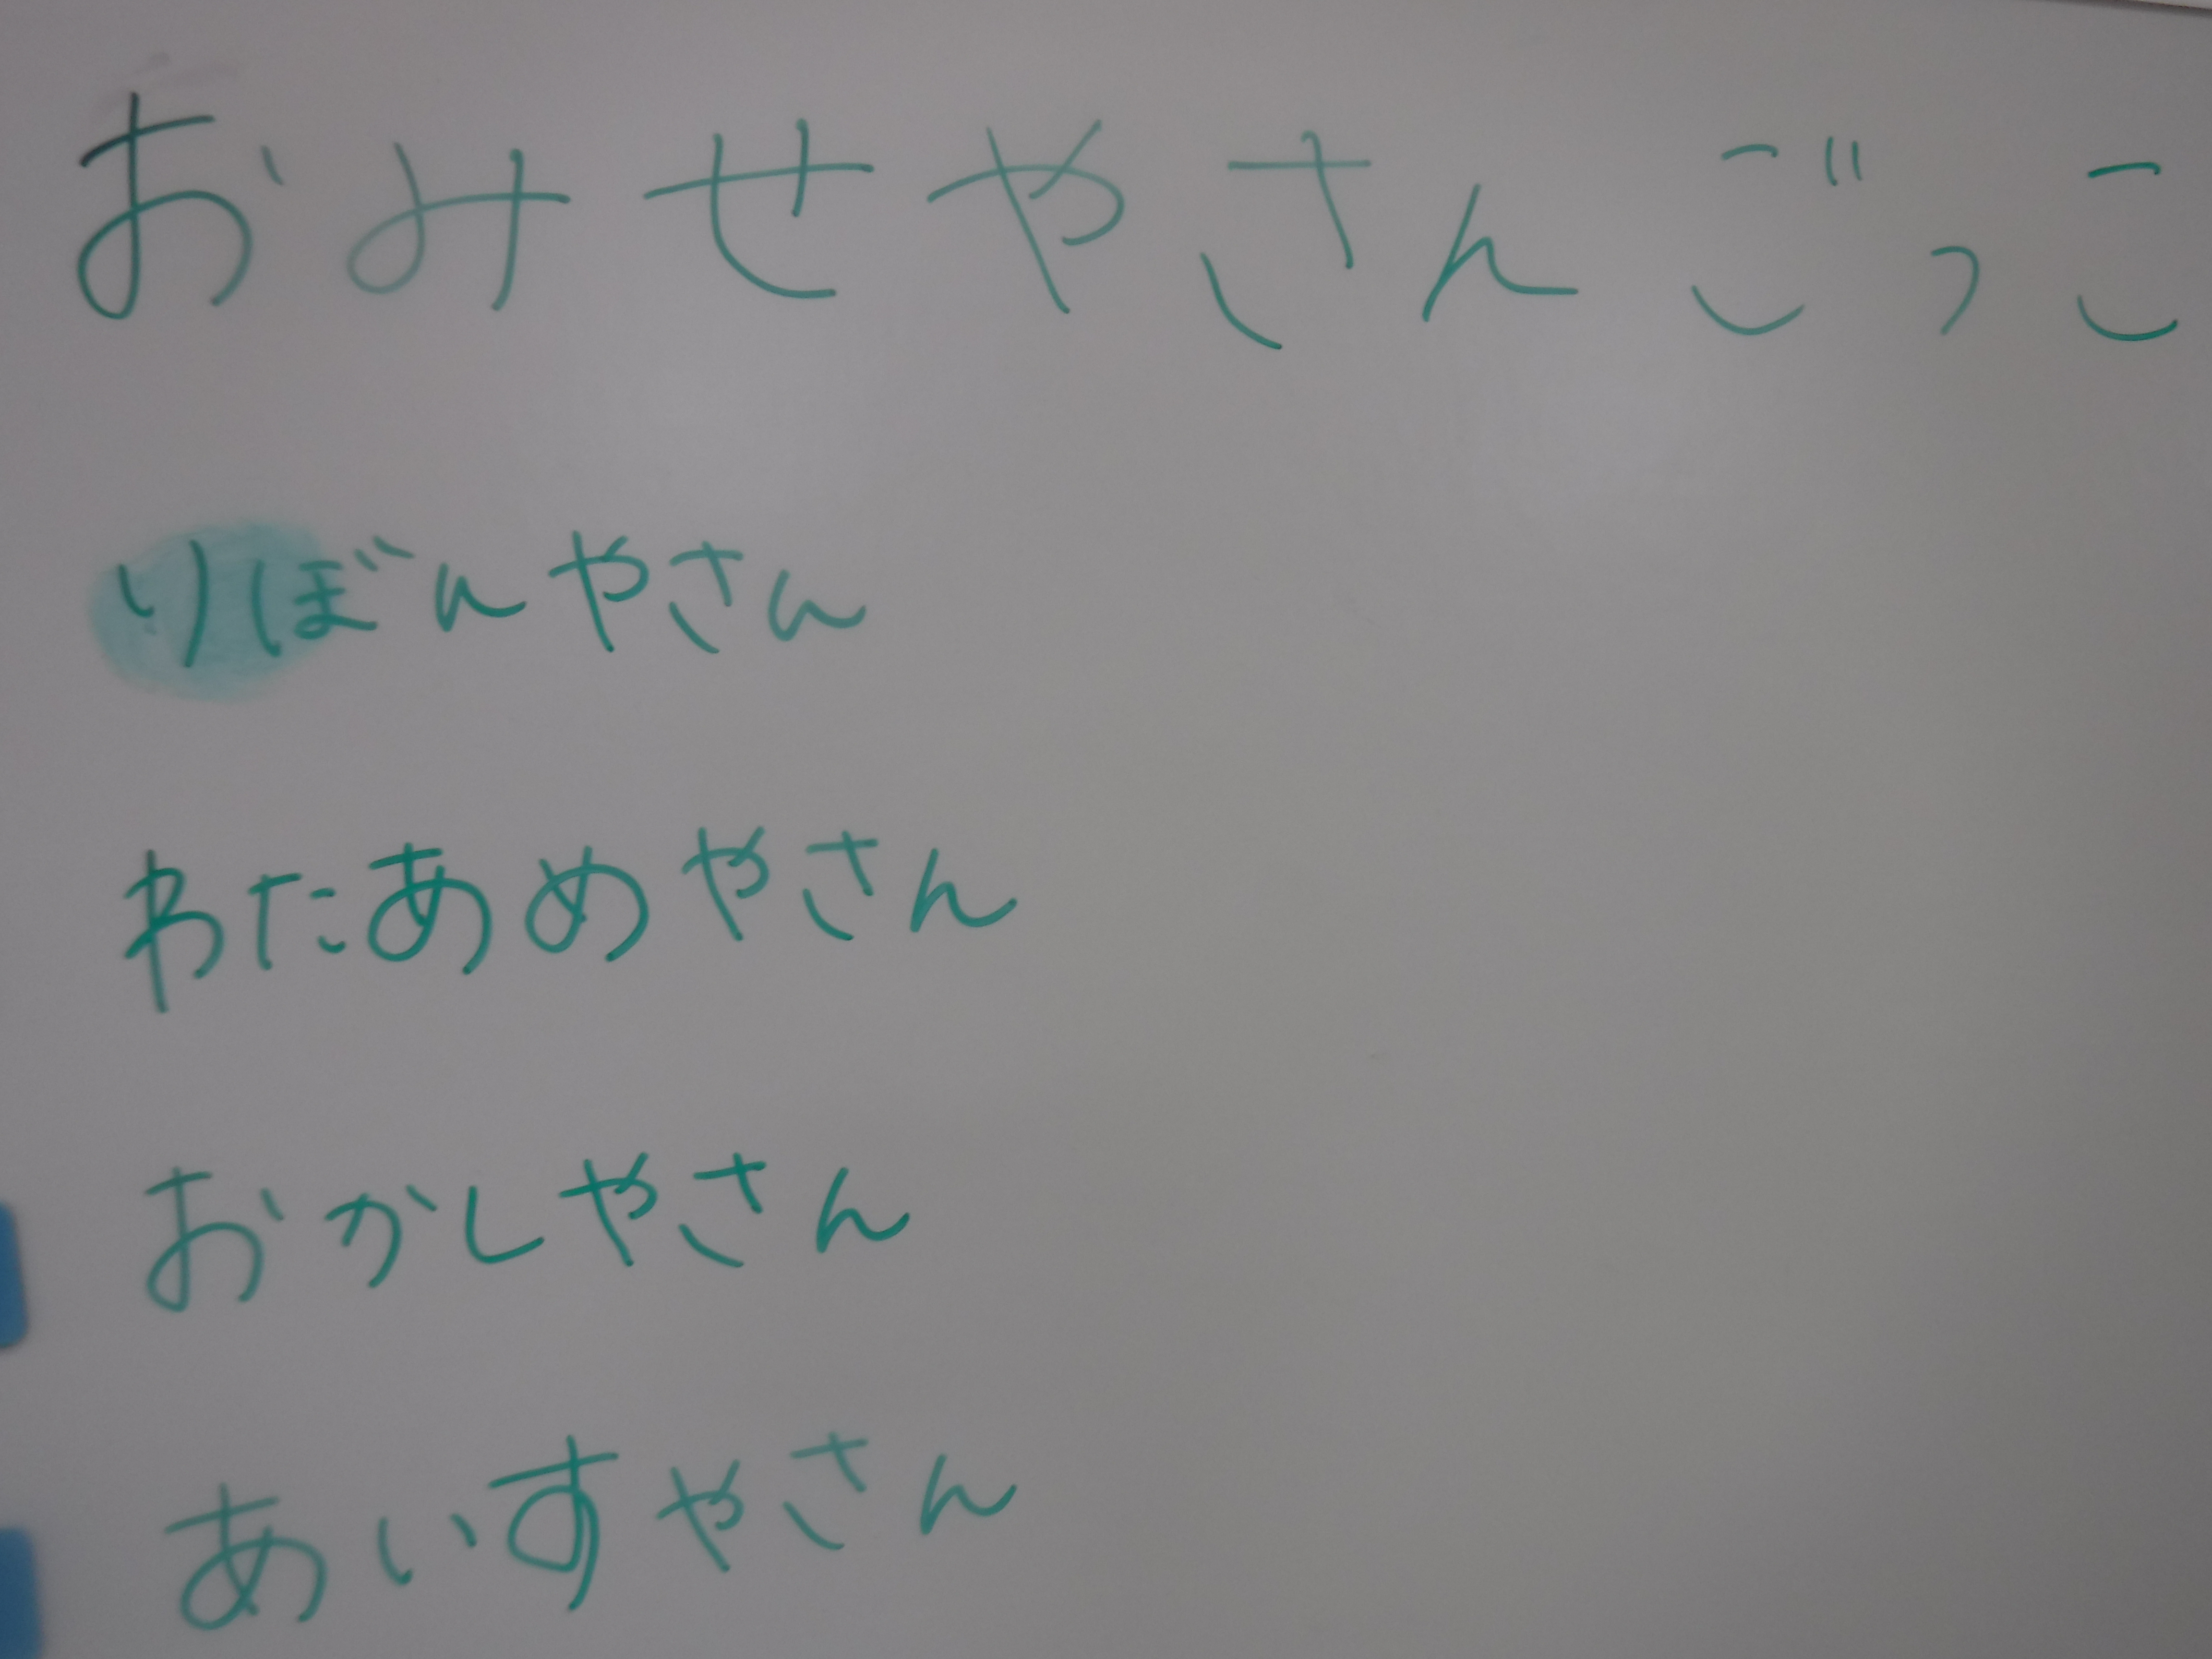 おみせやさんごっこ
りぼんやさん
わたあめやさん
おかしやさん
あいすやさん